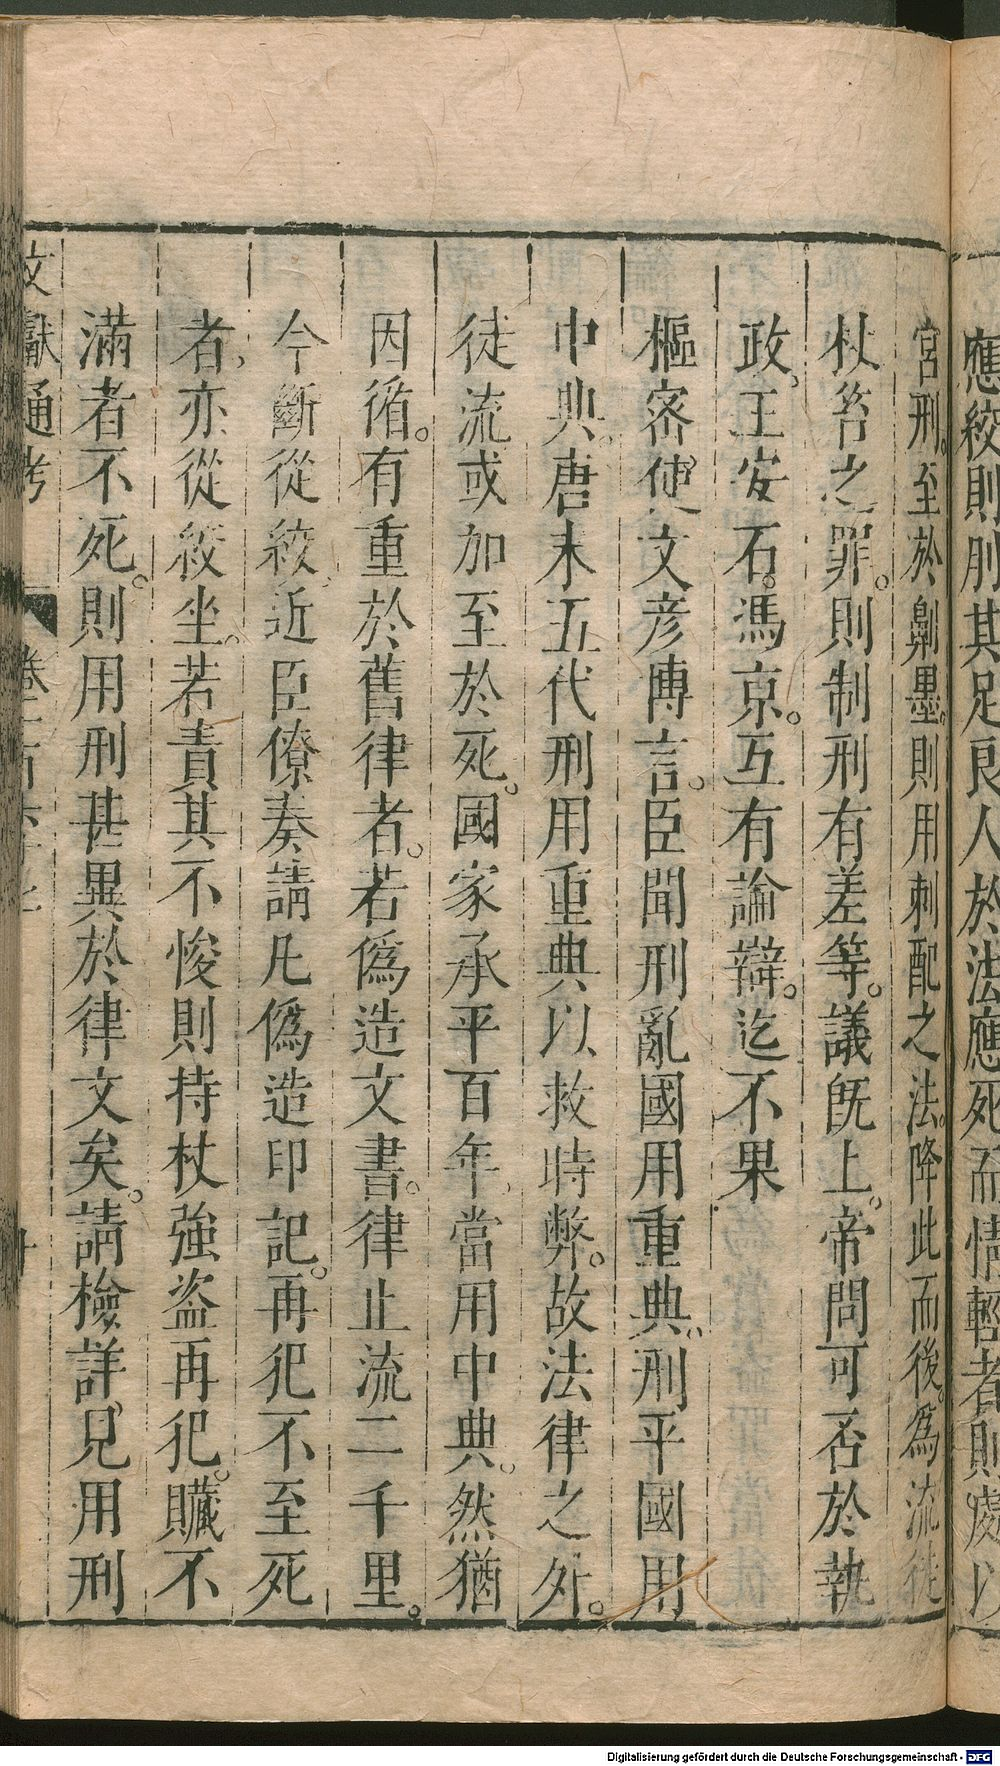 應絞則刖其足良人於法應死而情輕者則處以
宮刑。至於劓墨。則用刺配之法。降此而後。爲流徒
杖笞之罪。則制刑有差等。議旣上。帝問可否於執
政。王安石。馮京。互有論辯。迄不果
樞密使文彦博言。臣聞刑亂國用重典。刑平國用
中典。唐末五代刑用重典以救時弊。故法律之外。
徒流或加至於死。國家承平百年。當用中典。然猶
因循。有重於舊律者。若僞造文書。律止流二千里。
今斷從絞。近臣僚奏請凡僞造印記。再犯不至死
者。亦從絞坐。若責其不悛則持杖強盗再犯。贓不
滿者不死。則用刑甚異於律文矣。請檢詳見用刑
文獻通考
Digitalisierung gefördert durch die Deutsche Forschungsgemeinschaft - DFG